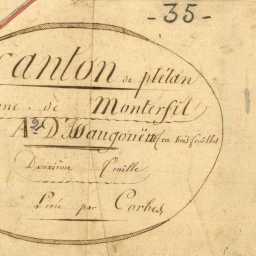 -35-
canton de plélan
ne de Monterfil
Don D'Haugouët en trois feuilles
Deuxieme feuille
Levé par Carhel